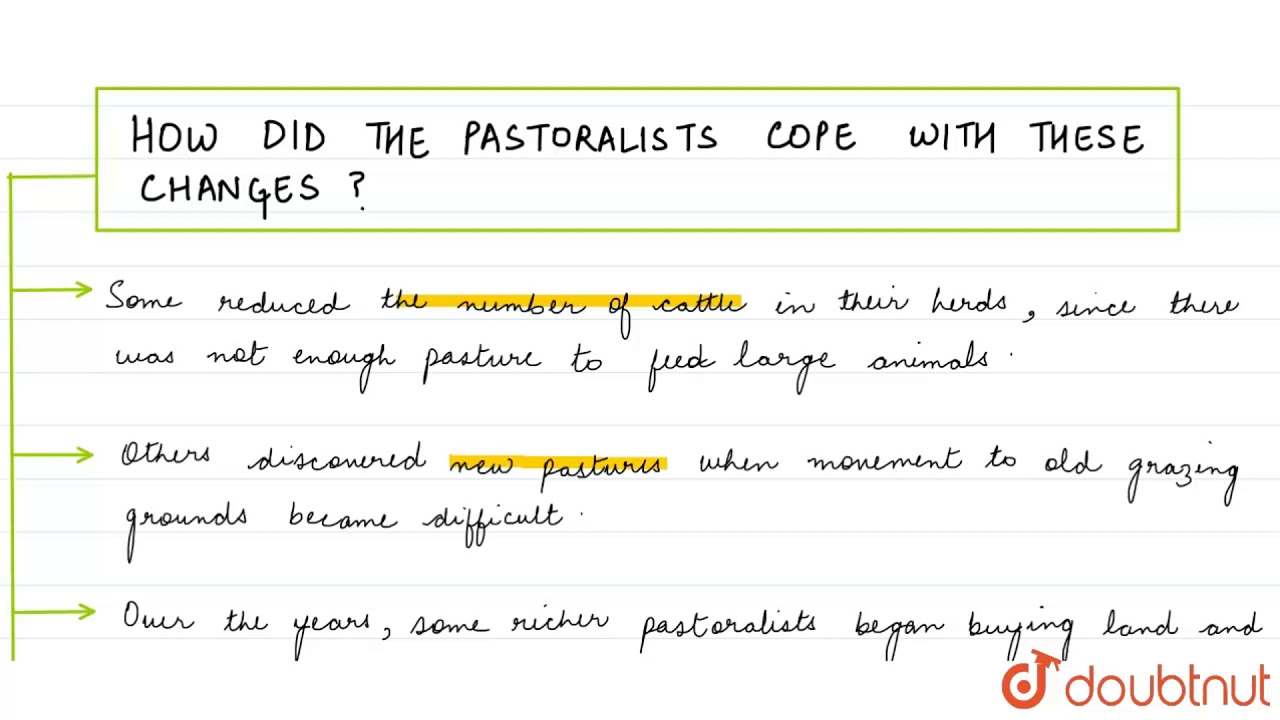 HOW DID THE PASTORALISTS COPE WITH THESE
CHANGES ?
Some reduced the number of cattle in their herds, since there
was not enough pasture to feed large animals.
Others discovered new pastures when movement to old grazing
grounds became difficult.
Over the years, some richer pastoralists began buying land and
doubtnut